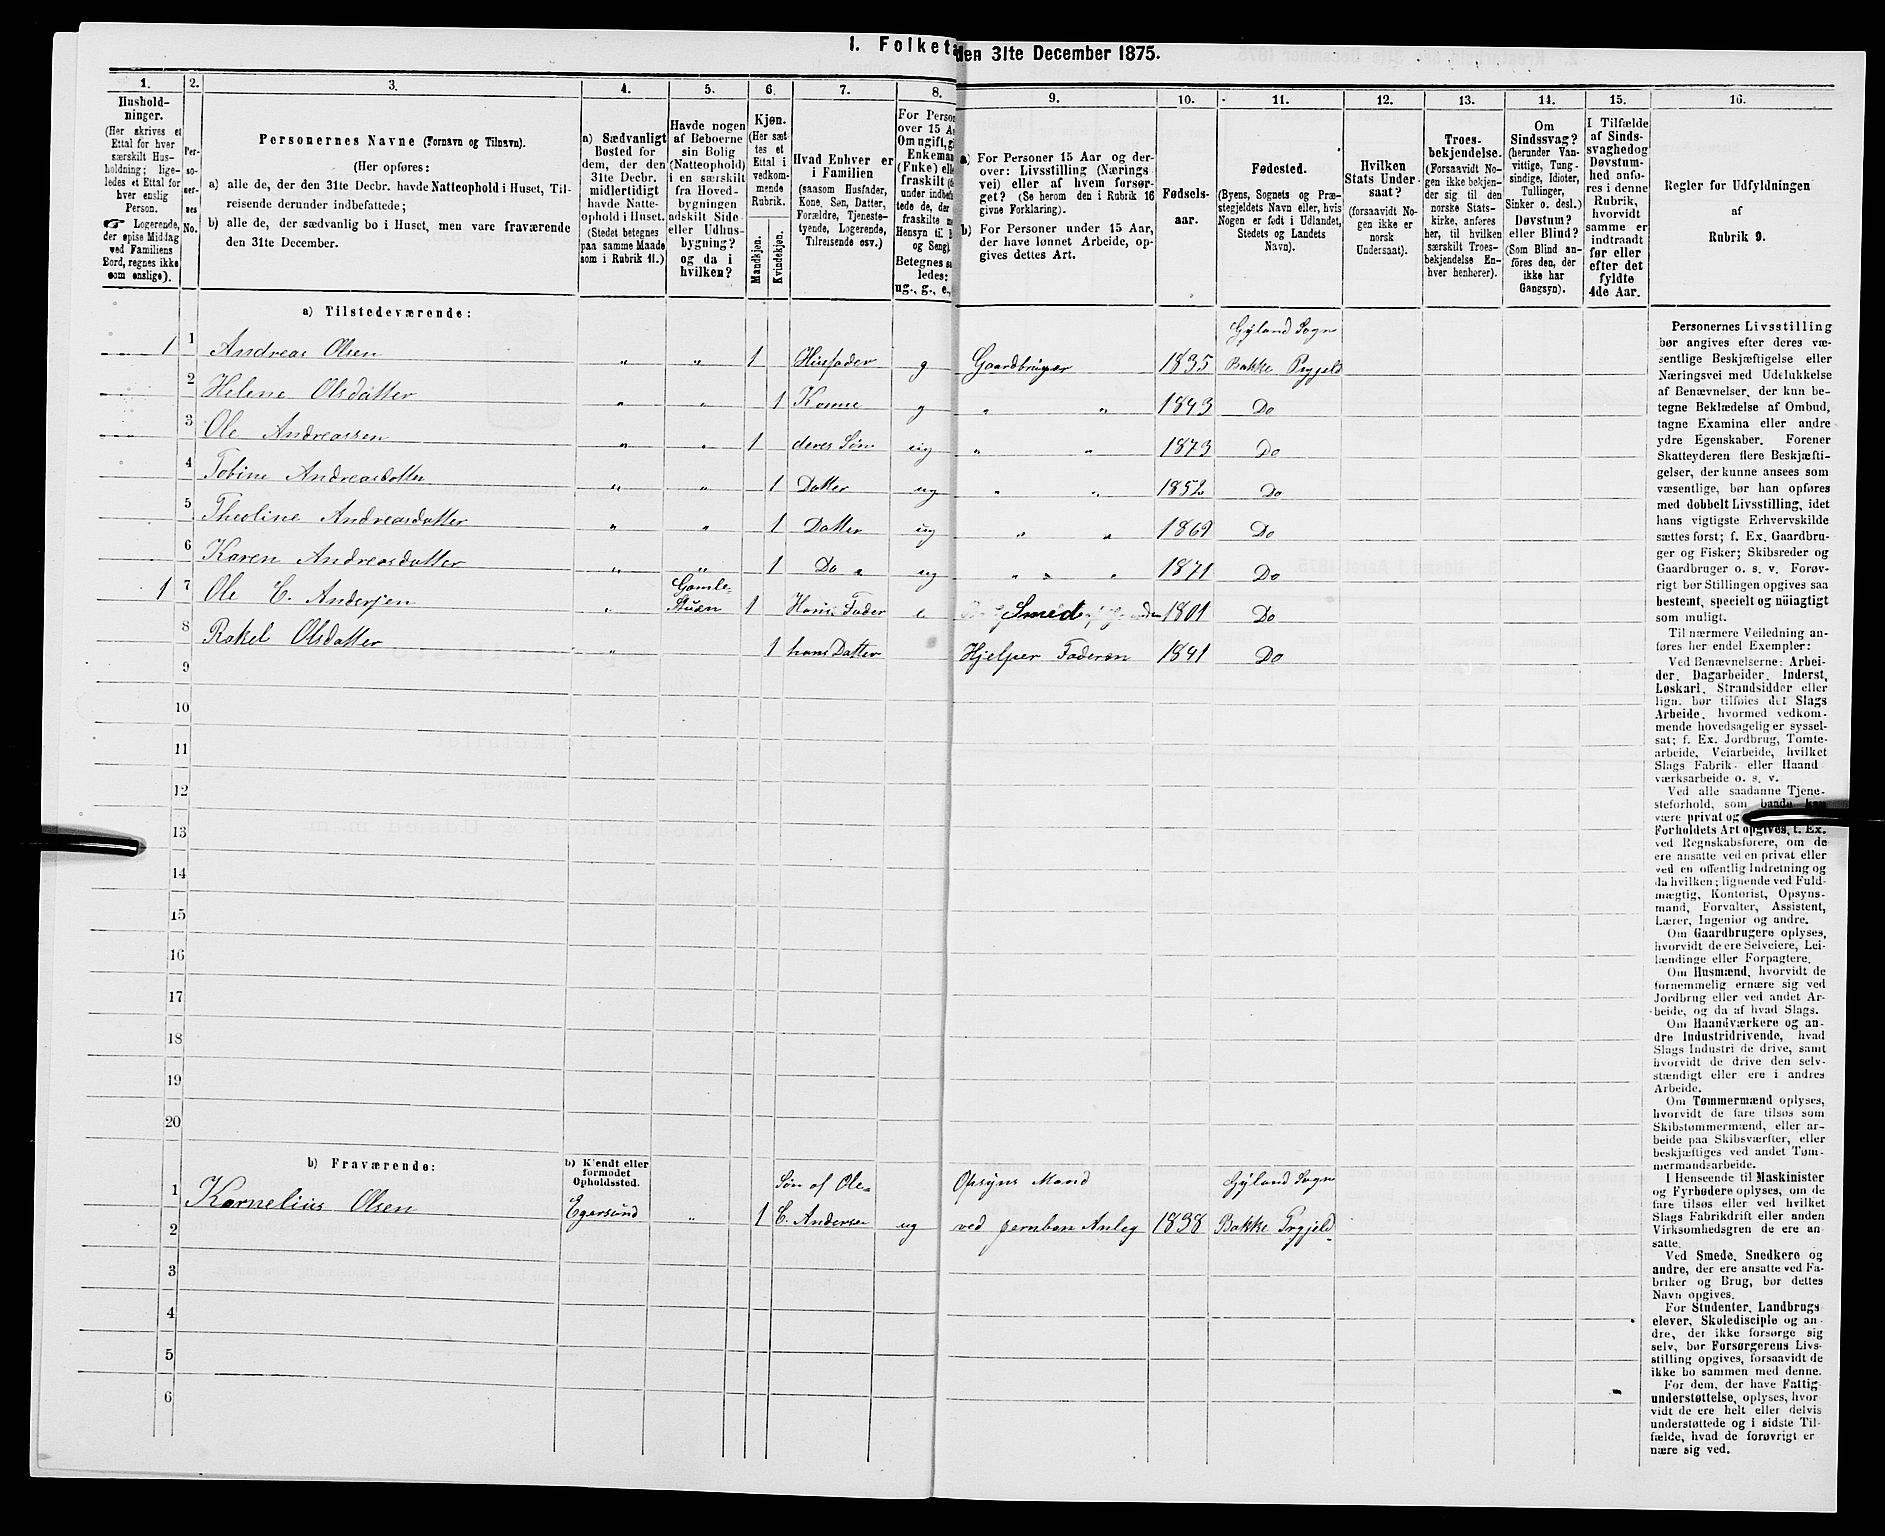 1. Folket
den 31te December 1875.
1. 2. 3. 4. 5. 6. 7. 8. 9. 10. 11. 12. 13. 14. 15. 16.
Hushold-
ninger.
(Her skrives et
Ettal for hver
særskilt Hus-
holdning; lige-
ledes et Ettal for
hver enslig
Person.
☞ Logerende,
der spise Middag
ved Familiens
Bord, regnes ikke
som enslige).
Per-
so-
ner-
nes
No.
Personernes Navne (Fornavn og Tilnavn).
(Her opføres:
a) alle de, der den 31te Decbr. havde Natteophold i Huset, Til-
reisende derunder indbefattede;
b) alle de, der sædvanlig bo i Huset, men vare fraværende
den 31te December.
a) Sædvanligt
Bosted for
dem, der den
31te Decbr.
midlertidigt
havde Natte-
ophold i Huset.
(Stedet betegnes
paa samme Maade
som i Rubrik 11.)
Havde nogen
af Beboerne
sin Bolig
(Natteophold)
i en særskilt
fra Hoved-
bygningen
adskilt Side-
eller Udhus-
bygning?
og da i
hvilken?
Kjøn.
(Her sæt-
tes et
Ettal i
vedkom-
mende
Rubrik.
Mandkjøn.
Kvindekjøn.
Hvad Enhver er
i Familien
(saasom Husfader,
Kone, Søn, Datter,
Forældre, Tjeneste-
tyende, Logerende,
Tilreisende osv.)
For Person
over 15 Aa
Om ugift, gi
Enkemand
(Enke) elle
fraskilt (d
under indbe
tede de, der
fraskilte m
Hensyn til B
og Seng).
Betegnes saa
ledes:
ug., g., e.,
a) For Personer 15 Aar og der-
over: Livsstilling (Nærings
vei) eller af hvem forsør-
get? (Se herom den i Rubrik 16
givne Forklaring).
b) For Personer under 15 Aar,
der have lønnet Arbeide, op-
gives dettes Art.
Fødsels-
aar.
Fødested.
(Byens, Sognets og Præ-
stegjeldets Navn eller, hvis
Nogen er født i Udlandet,
Stedets og Landets
Navn).
Hvilken
Stats Under-
saat?
(forsaavidt No-
gen ikke er
norsk
Undersaat).
Troes-
bekjendelse.
(Forsaavidt No-
gen ikke bekjen-
der sig til den
norske Stats-
kirke, anføres
her, til hvilken
særskilt Troes-
bekjendelse En-
hver henhører).
Om
Sindssvag?
(herunder Van-
vittige, Tung-
sindige, Idioter,
Tullinger,
Sinker o. desl.)
Døvstum?
eller Blind?
(Som Blind an-
føres den, der
ikke har
Gangsyn).
I Tilfælde
af Sinds-
svaghed og
Døvstum-
hed anfø-
res i denne
Rubrik,
hvorvidt
samme er
indtraadt
før eller
efter det
fyldte
4de Aar.
Regler for Udfyldningen
af
Rubrik 9.
a) Tilstedeværende:
1 1 Andreas Olsen „ „ 1 Husfader g Gaardbruger 1835 Gyland Sogn
Bakke Prgjeld
2 Helene Olsdatter „ „ 1 Konne g „ „ 1843 Do
3 Ole Andreassen „ „ 1 deres Søn ug „ „ 1873 Do
4 Tobine Andreasdatter „ „ 1 Datter ug „ „ 1852 Do
5 Theoline Andreasdatter „ „ 1 Datter ug „ „ 1869 Do
6 Karen Andreasdatter „ „ 1 Do „ ug „ „ „ 1871 Do
1 7 Ole C. Andersen „ Gamle-
Stuen 1 Hans Fader e Smed 1801 Do
8 Rakel Olsdatter „ 1 hans Datter Hjelper Faderen 1841 Do
9
10
11
12
13
14
15
16
17
18
19
20
b) Fraværende:
b) Kjendt eller
formodet
Opholdssted.
1 Kornelius Olsen Egersund „ 1 Søn af Ole
C. Andersen ug Opsyns Mand
ved Jernban Anleg 1838 Gyland Sogn
Bakke Prgjeld
2
3
4
5
6
Personernes Livsstilling
bør angives efter deres væ-
sentlige Beskjæftigelse eller
Næringsvei med Udelukkelse
af Benævnelser, der kun be-
tegne Beklædelse af Ombud,
tagne Examina eller andre
ydre Egenskaber. Forener
Skatteyderen flere Beskjæfti-
gelser, der kunne ansees som
væsentlige, bør han opføres
med dobbelt Livsstilling, idet
hans vigtigste Erhvervskilde
sættes først; f. Ex. Gaardbru-
ger og Fisker; Skibsreder og
Gaardbruger o. s. v. Forøv-
rigt bør Stillingen opgives saa
bestemt, specielt og nöiagtigt
som muligt.
Til nærmere Veiledning an-
føres her endel Exempler:
Ved Benævnelserne: Arbei-
der, Dagarbeider, Inderst,
Løskarl, Strandsidder eller
lign. bør tilføies det Slags
Arbeide, hvormed vedkom-
mende hovedsagelig er syssel-
sat; f. Ex. Jordbrug, Tomte-
arbeide, Veiarbeide, hvilket
Slags Fabrik- eller Haand
værksarbeide o. s. v.
Ved alle saadanne Tjene-
steforhold, som baade kan
være privat og
Forholdets Art opgives, f. Ex.
ved Regnskabsførere, om de
ere ansatte ved en privat eller
ved en offentlig Indretning og
da hvilken; lignende ved Fuld-
mægtig, Kontorist, Opsyns-
mand, Forvalter, Assistent,
Lærer, Ingeniør og andre.
Om Gaardbrugere oplyses,
hvorvidt de ere Selveiere, Lei-
lændinge eller Forpagtere.
Om Husmænd, hvorvidt de
fornemmelig ernære sig ved
Jordbrug eller ved andet Ar-
beide, og da af hvad Slags.
Om Haandværkere og an-
dre Industridrivende, hvad
Slags Industri de drive, samt
hvorvidt de drive den selv-
stændigt eller ere i andres
Arbeide.
Om Tømmermænd oplyses,
hvorvidt de fare tilsøs som
Skibstømmermænd, eller ar-
beide paa Skibsværfter, eller
beskjæftiges ved andet Tøm-
mermandsarbeide.
I Henseende til Maskinister
og Fyrbødere oplyses, om de
fare tilsøs eller ved hvilket
Slags Fabrikdrift eller anden
Virksomhedsgren de ere an-
satte.
Ved Smede, Snedkere og
andre, der ere ansatte ved Fa-
briker og Brug, bør dettes
Navn opgives.
For Studenter, Landbrugs
elever, Skoledisciple og an-
dre, der ikke forsørge sig
selv, bør Forsørgerens Livs-
stilling opgives, forsaavidt de
ikke bo sammen med denne.
For dem, der have Fattig
understøttelse, oplyses, hvor
vidt de ere helt eller delvis
understøttede og i sidste Til-
fælde, hvad de forøvrigt er
nære sig ved.